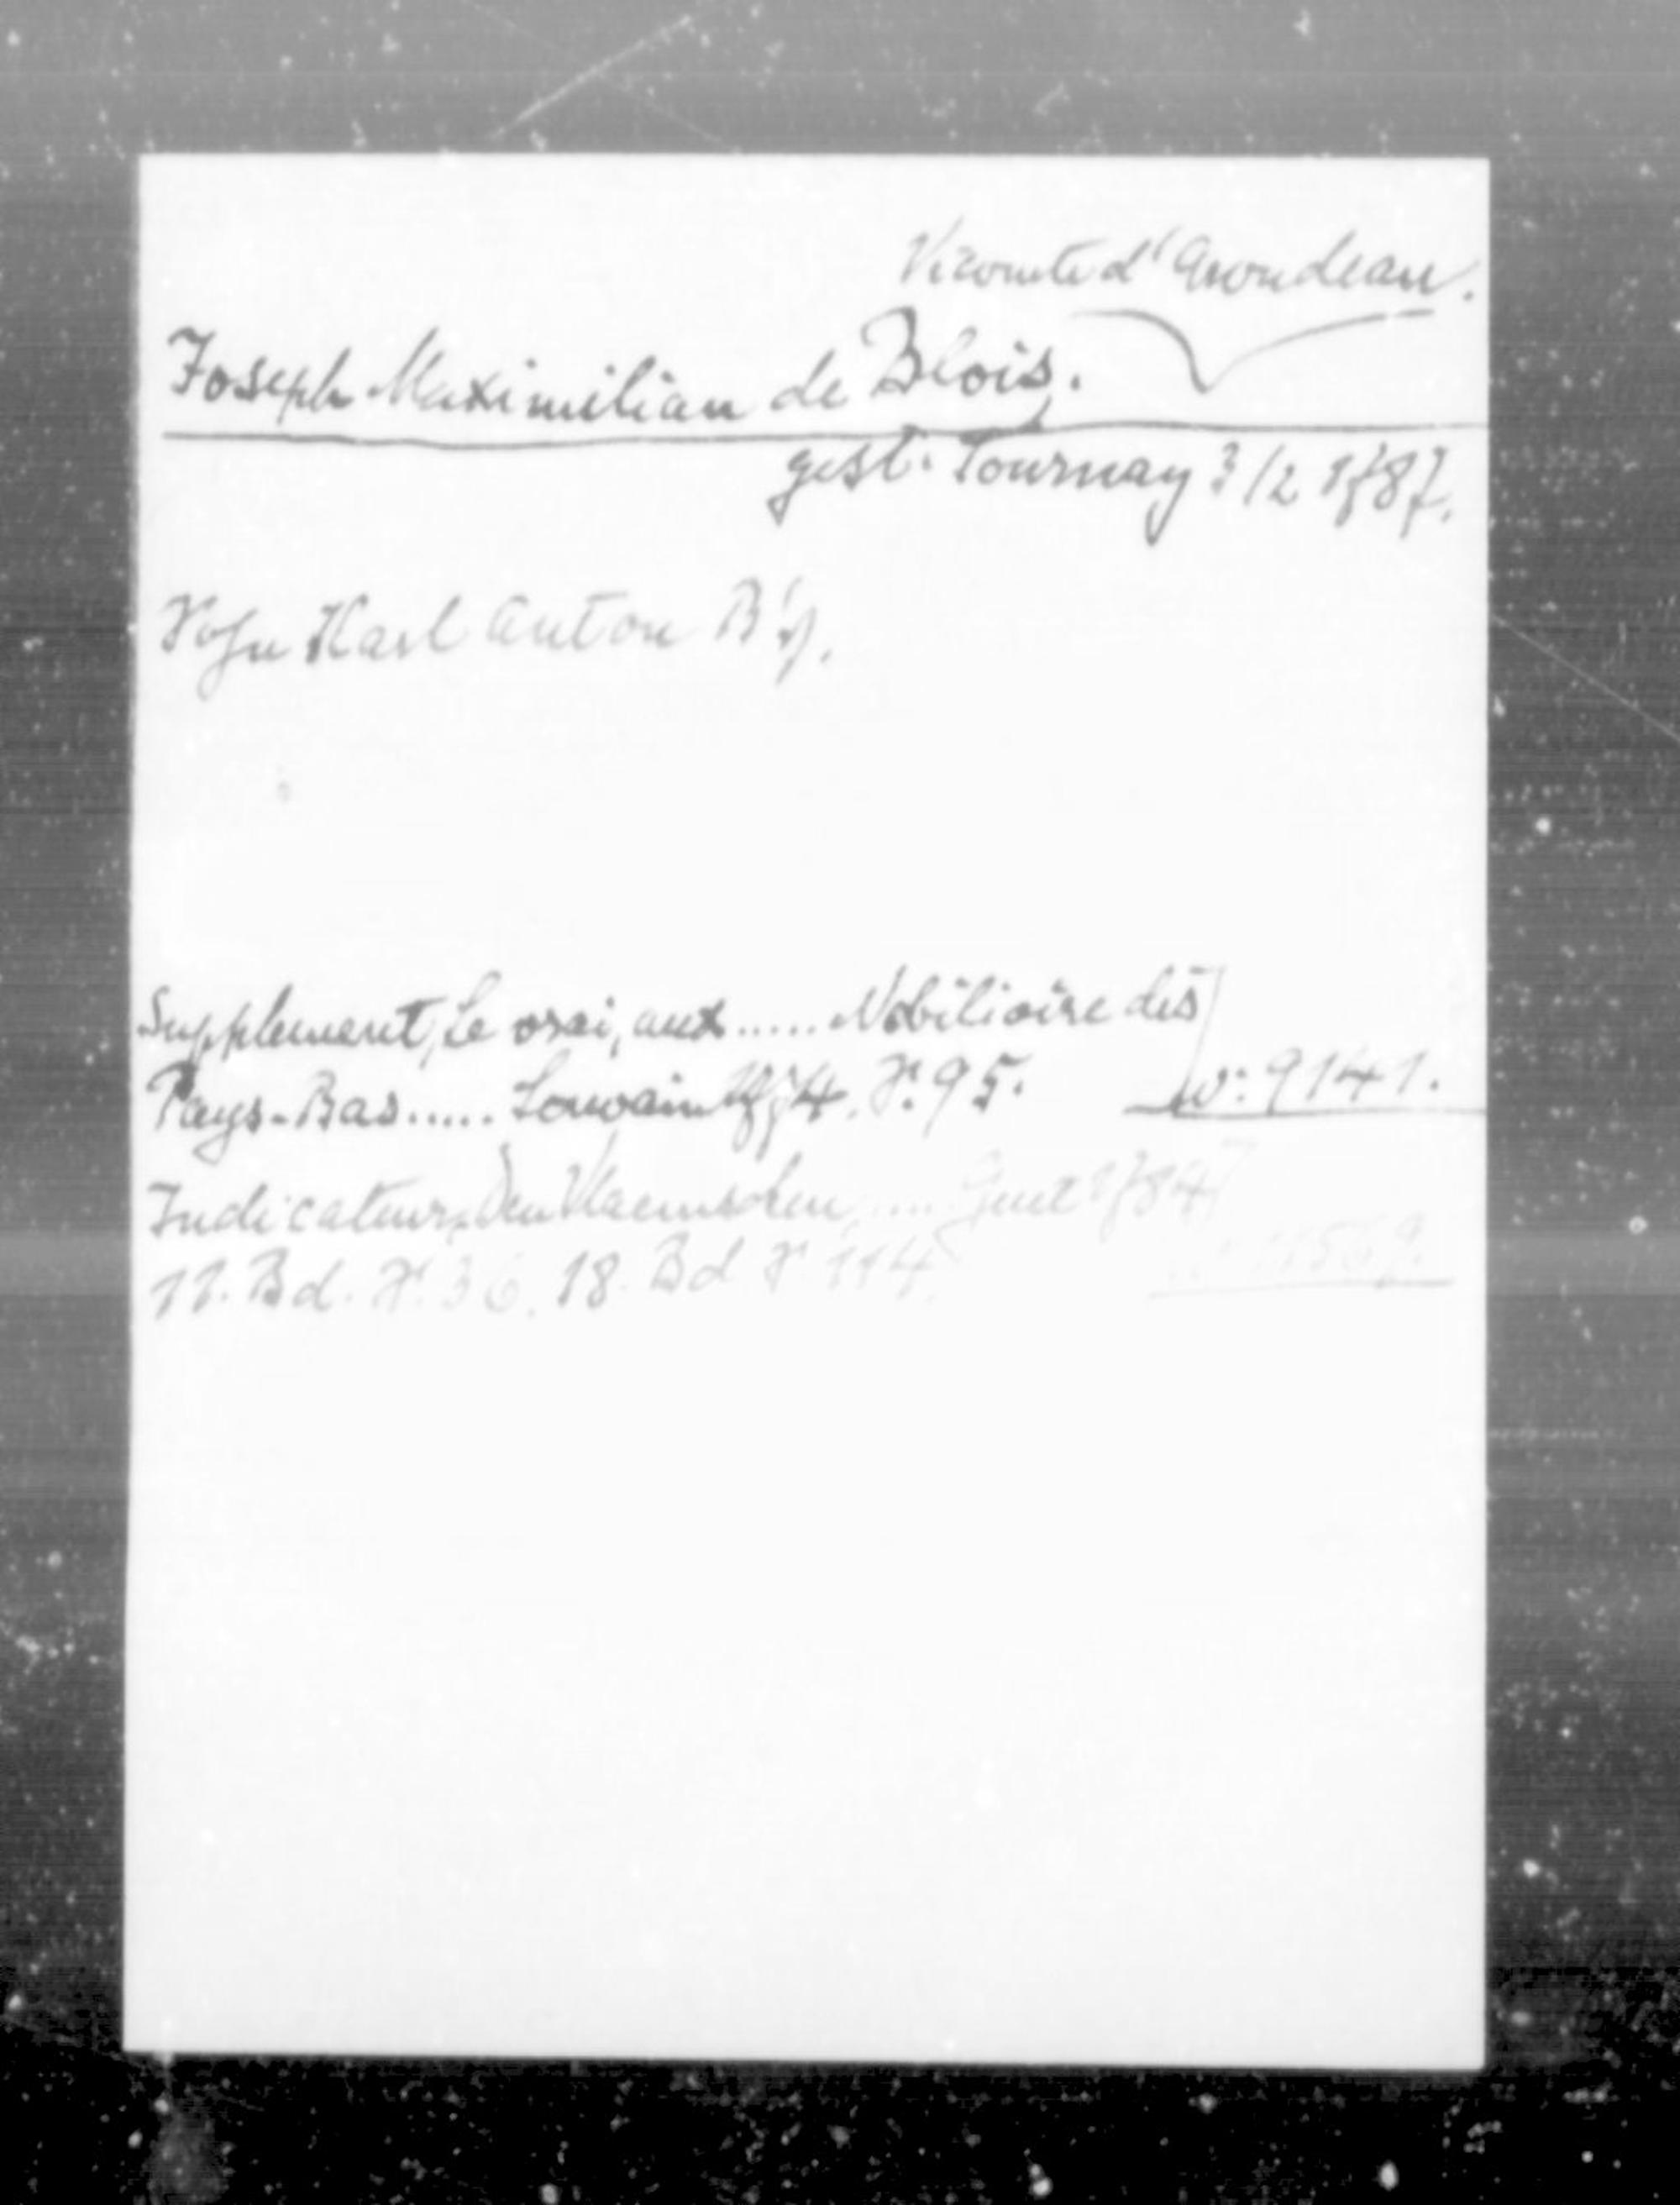 Vicomte d'Arondeau.
Joseph Maximilian de Blois.
gest. Tournay 3/2 1787.
Sohn Karl Anton B's.
Supplement, Le vrai, aux ..... Nobilioire des
Pays-Bas ..... Louvain 1774. S. 95. W: 9141.
Indicateur, Den Vlaemschen ..... Gent 1784
11. Bd. S. 36. 18. Bd S. 114.